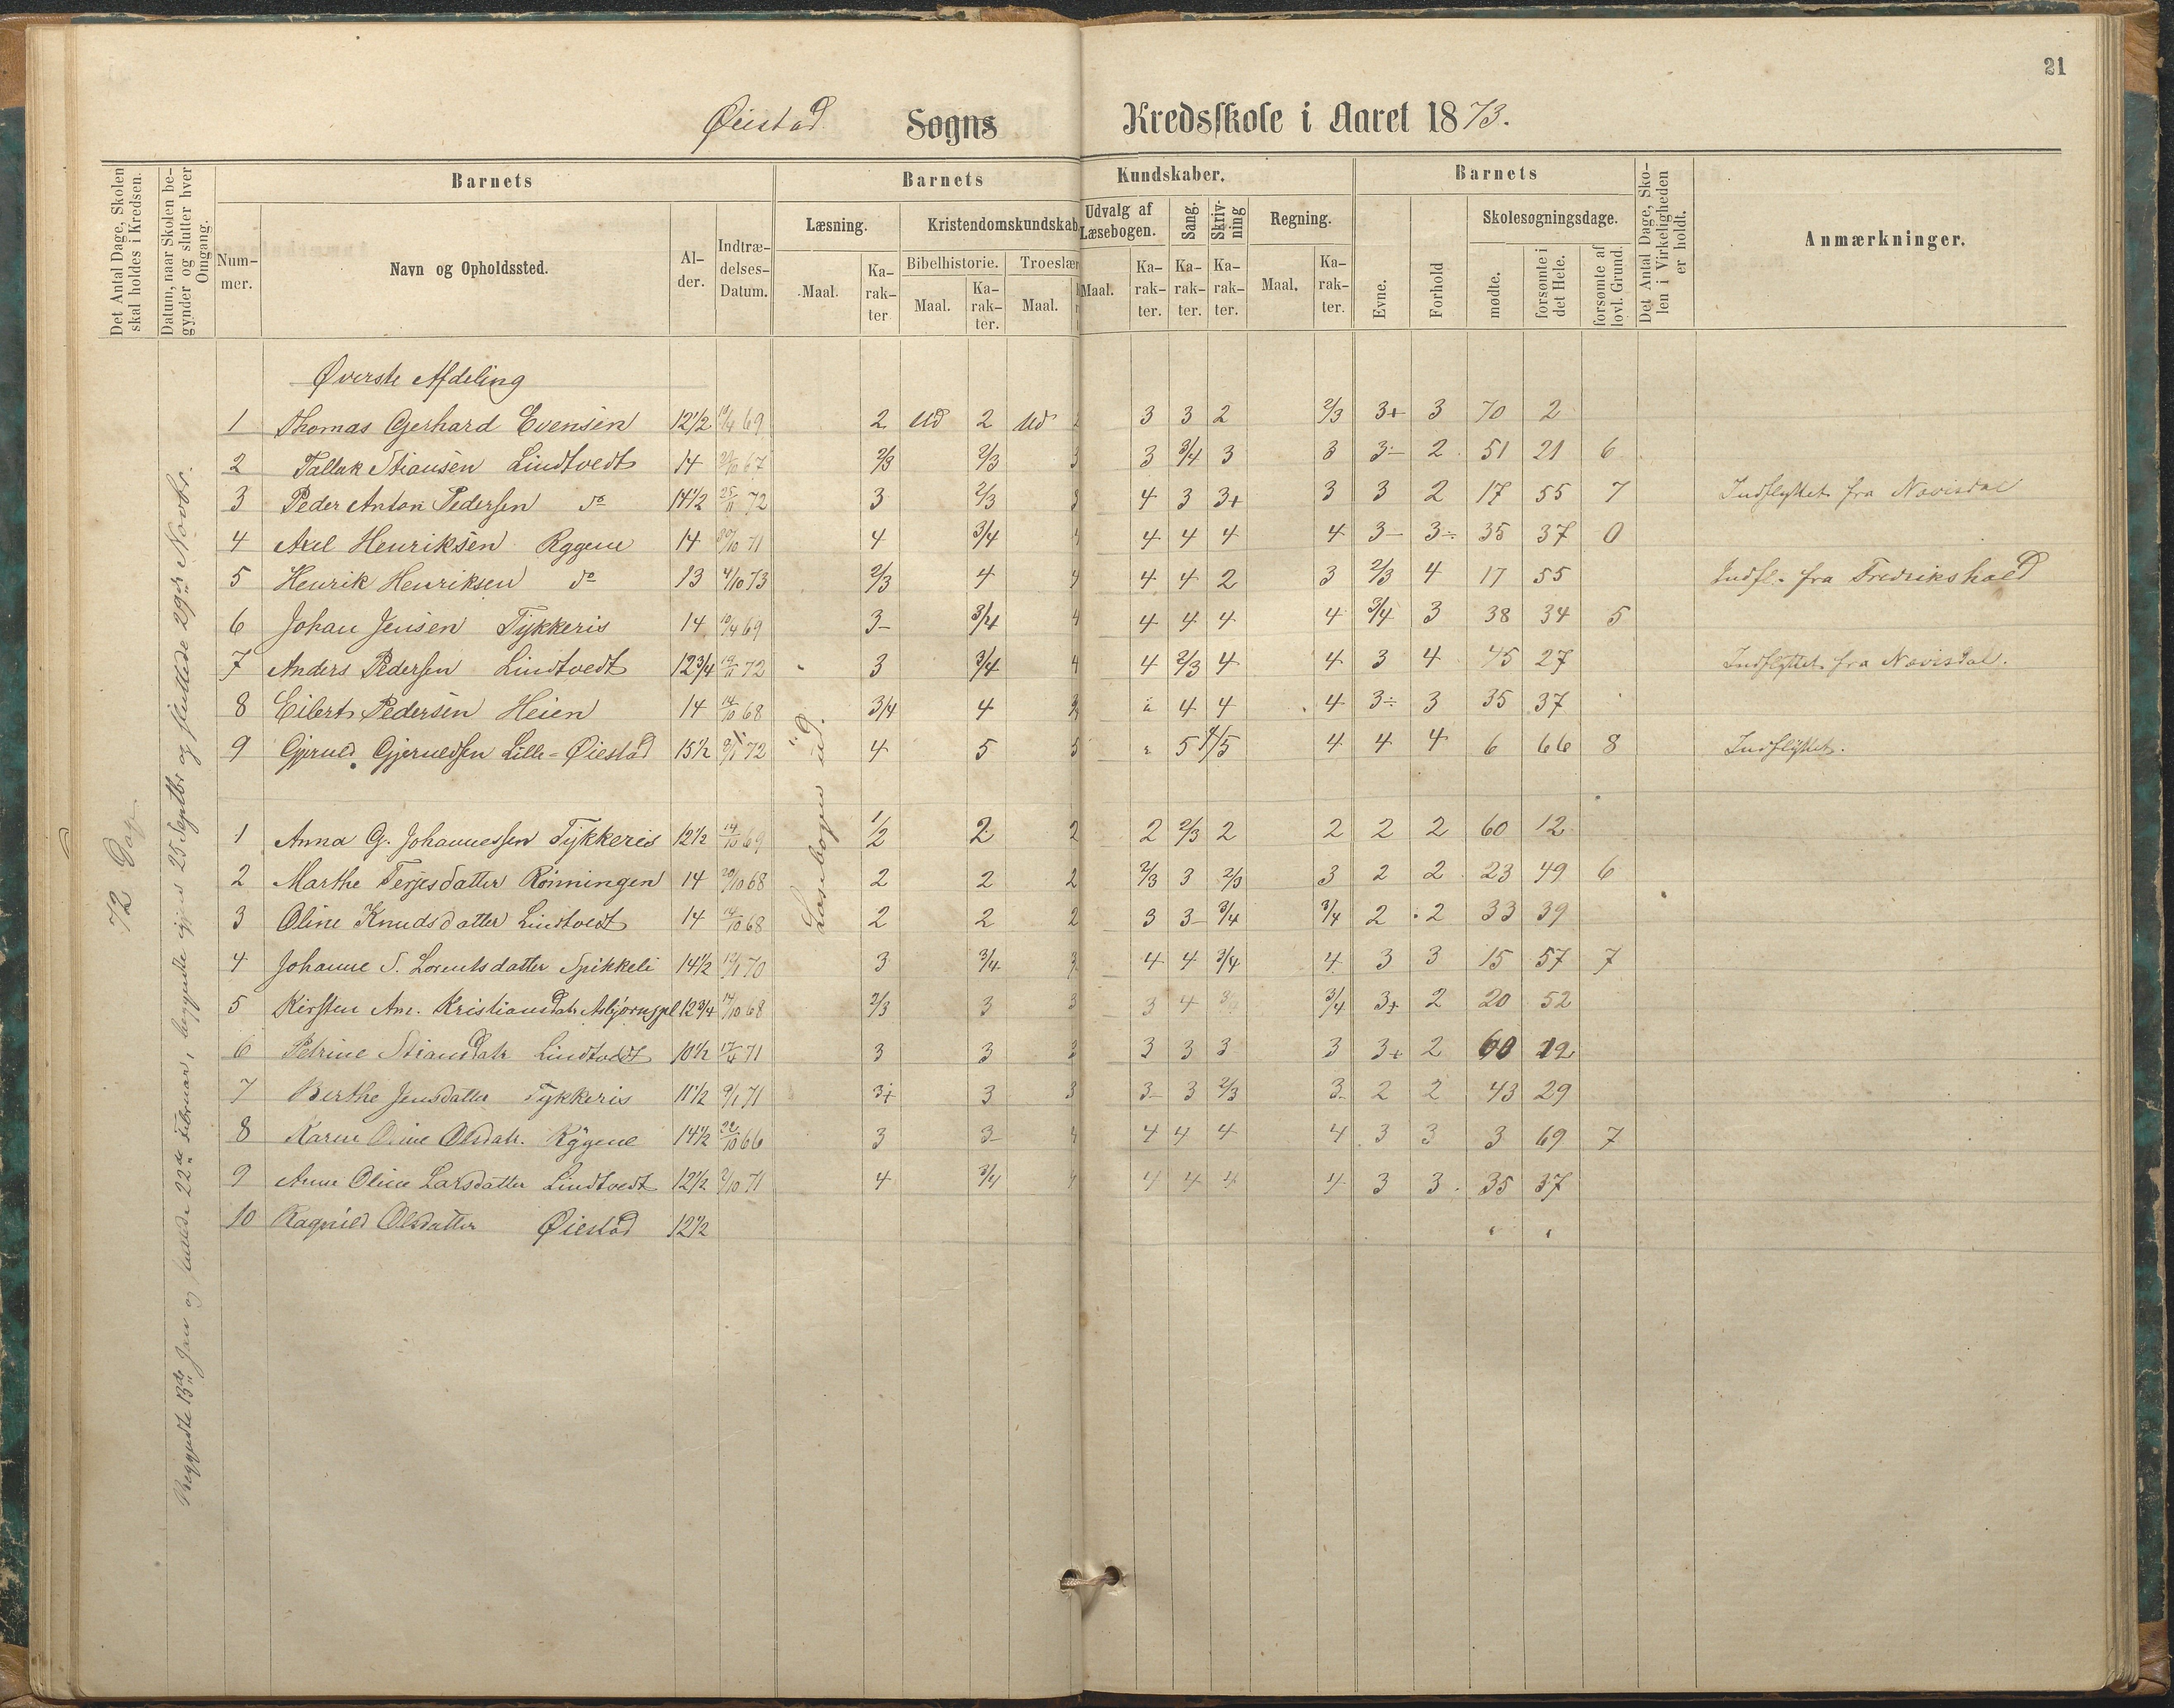 21
Øiestad Sogns Kredsskole i Aaret 1873.
Det Antal Dage, Skolen skal holdes i Kredsen.
Datum, naar Skolen begynder og slutter hver Omgang.
Barnets
Nummer.
Navn og Opholdssted.
Alder.
Indtrædelses-Datum.
Barnets Kundskaber.
Læsning.
Maal.
Karakter
Kristendomskundskab
Bibelhistorie.
Maal.
Karakter.
Troeslær
Maal.
Udvalg af Læsebogen.
Maal.
Karakter.
Sang.
Karakter.
Skrivning
Karakter.
Regning.
Maal.
Karakter.
Barnets
Evne.
Forhold
Skolesøgningsdage.
mødte.
forsømte i det Hele.
forsømte af lovl. Grund.
Det Antal Dage, Skolen i Virkeligheden er holdt.
Anmærkninger.
72 Dag
Beggyndte 13de Jan og sluttede 22de Februar, beggyndte igjen 25 Septbr og sluttede 29de Novbr.
Læsebogen ud.
Øverste Afdeling
1 Thomas Gerhard Evensen 12½ 19/4 69 2 Ud 2 Ud 3 3 2 2/3 3+ 3 70 2
2 Tallak Stiansen Lindtvedt 14 67 2/3 2/3 3 3 3/4 3 3 3- 2 51 21 6
3 Peder Anton Pedersen do 14½ 25/11 72 3 2/3 3 4 3 3+ 3 3 2 17 55 7 Indflyttet fra Novisdal
4 Axel Henriksen Rygene 14 20/10 71 4 3/4 4 4 4 4 4 3- 3÷ 35 37 0
5 Henrik Henriksen do 13 4/10 73 2/3 4 4 4 4 2 3 2/3 4 17 55 Indfl. fra Fredrikshald
6 Johan Jensen Tykkeris 14 19/4 69 3- 3/4 4 4 4 4 4 3/4 3 38 34 5
7 Anders Pedersen Lindtvedt 12¾ 19/11 72 3 3/4 4 4 2/3 4 4 3 4 45 27 Indflyttet fra Novisdal.
8 Eilert Pedersen Heien 14 14/10 68 3/4 4 4 4 4 3÷ 3 35 37
9 Gjeruld Gjeruldsen Lille-Øiestad 15½ 72 4 5 5 5 4/5 4 4 4 6 66 8 Indflyttet.
1 Anna G. Johannessen Tykkeris 12½ 14/10 69 1/2 2 2 2 2/3 2 2 2 2 60 12
2 Marthe Terjesdatter Rönningen 14 20/10 68 2 2 2 2/3 3 2/3 3 2 2 23 49 6
3 Oline Knudsdatter Lindtvedt 14 14/10 68 2 2 2 3 3- 3/4 3/4 2 2 33 39
4 Johanne S. Lorentsdatter Spikkeli 14½ 70 3 3/4 3 4 4 3/4 4 3 3 15 57 7
5 Kirsten An. Kristiansdatr Asbjörnspl 12¾ 14/10 68 2/3 3 3 3 4 3/4 3+ 2 20 52
6 Petrine Stiansdatr Lindtvedt 10½ 17/4 71 3 3 3 3 3 3 3 3+ 2 60 12
7 Berthe Jensdatter Tykkeris 11½ 9/1 71 3+ 3 3 3- 3 2/3 3- 2 2 43 29
8 Karen Oline Olsdatr. Rygene 14½ 22/10 66 3 3- 4 4 4 4 4 3 3 3 69 7
9 Anne Oline Larsdatter Lindtvedt 12½ 2/10 71 4 3/4 4 4 4 4 4 3 3 35 37
10 Ragnild Olsdatter Øiestad 12½